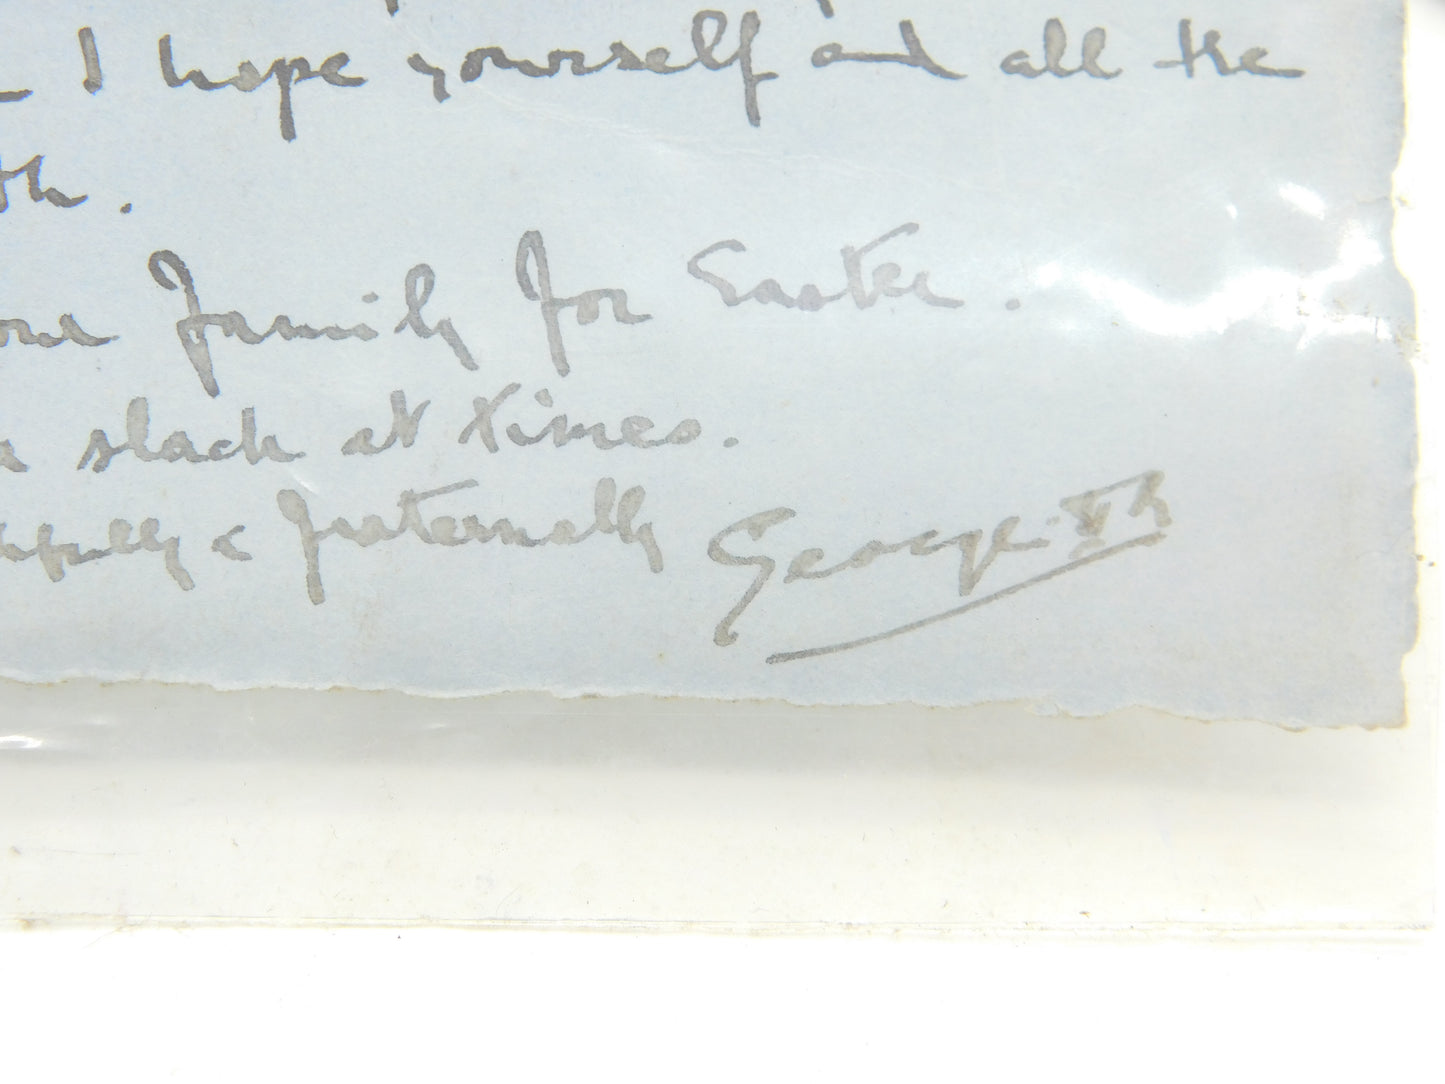 I hope yourself and all the
th.
our family for Easter.
a slack at times.
hfully & fraternally George Vth